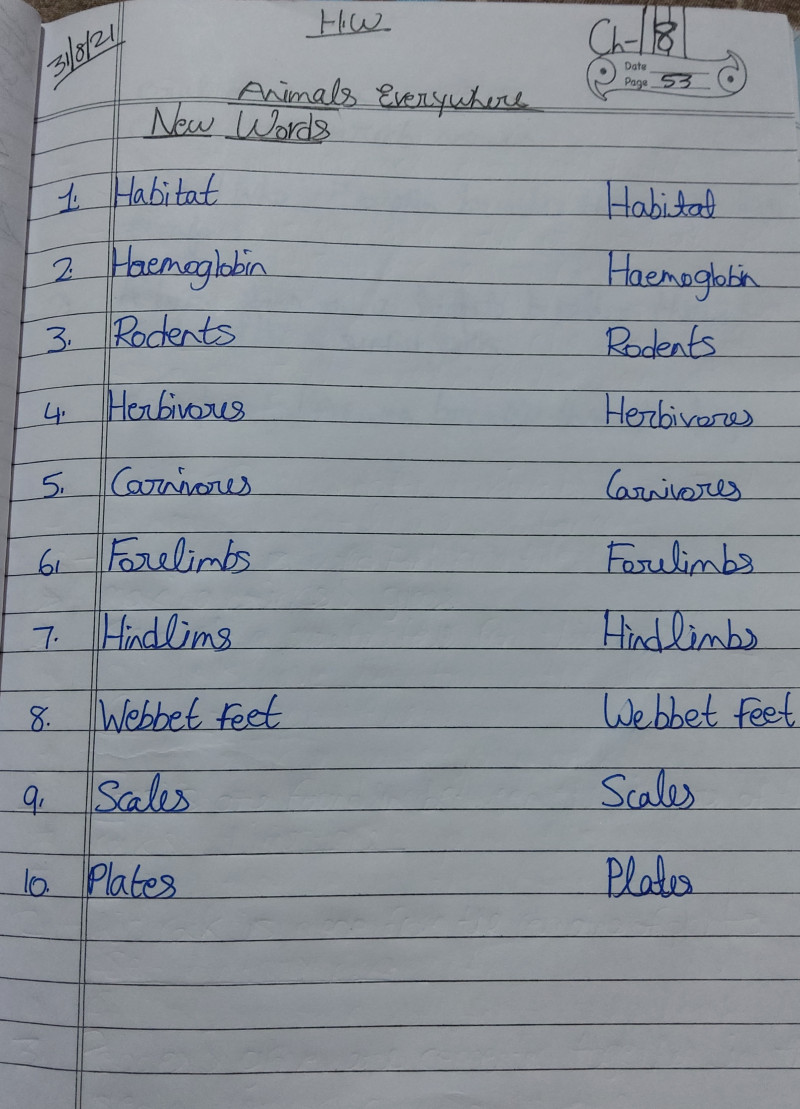 31/8/21
H.W
Ch-18
Date
Page 53
Animals Everywhere
New Words
1. Habitat Habitat
2. Haemoglobin Haemoglobin
3. Rodents Rodents
4. Herbivores Herbivores
5. Carnivores Carnivores
6. Forelimbs Forelimbs
7. Hindlims Hindlimbs
8. Webbet feet Webbet feet
9. Scales Scales
10. Plates Plates